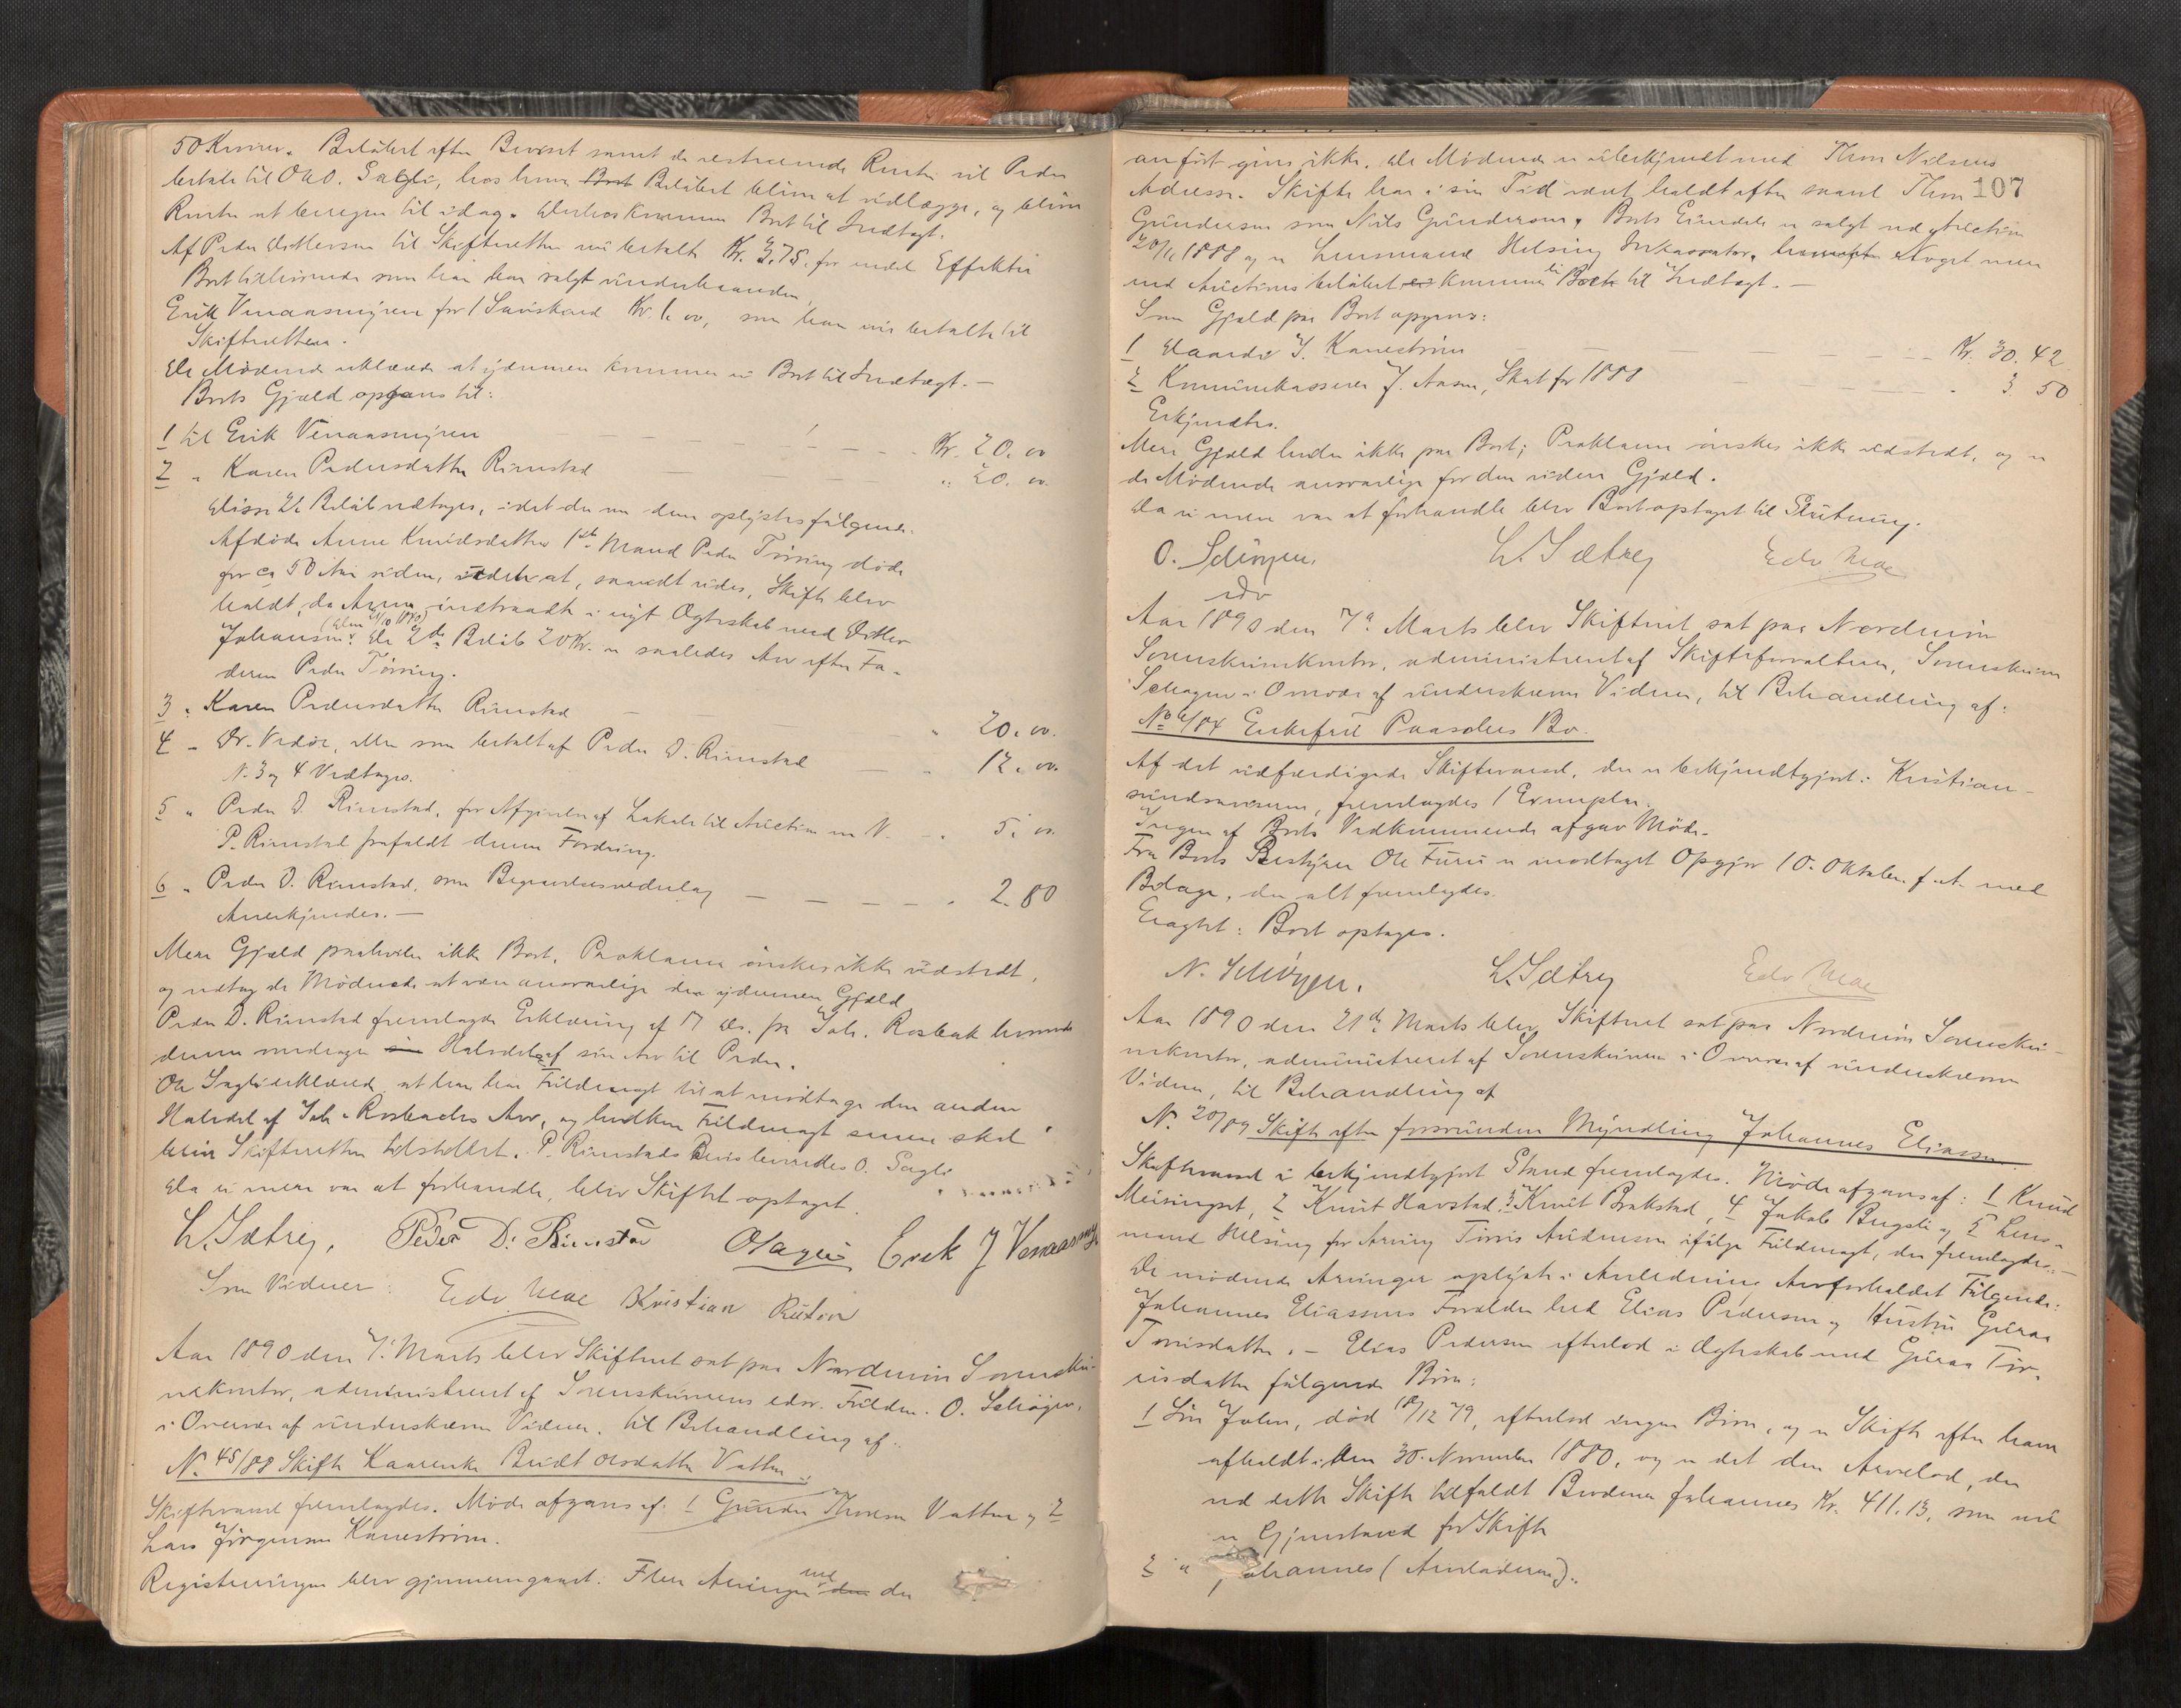 50 Kroner. Beløbet efter Beviset samt de resterende Renter vil Peder
betale til Ole O. Sagli, hos hvem Beløbet bliver at udlægge, og bliver
Renter at beregne til idag. Derhos kommer Boet til Indtægt.
Af Peder Ditlevsen til Skifteretten nu betalt Kr. 3.75. for endel Effekter
Boet tilhørende som han har solgt underhaanden.
Erik Venaasmyren for 1 Kr. 1.00, som han nu betalte til
Skifteretten.
De Mødende erklærede at ydermere kommer ei Boet til Indtægt. —
Boets Gjæld opgaves til:
1 til Erik Venaasmyren Kr. 20.00
2 " Karen Pedersdatter Rimstad " 20.00
Disse 2de Beløb vedtoges, idet der om dem oplystes følgende.
Afdøde Anne Knudsdatters 1ste Mand Peder Tøsing døde
for ca 50 Aar siden, uden at, saavidt vides, Skifte blev
holdt, da Anne indtraadte i nyt Ægteskab med Ditlev
Johansen. De 2de Beløb 20 Kr. er saaledes Arv efter Fa-
deren Peder Tøsing.
3 " Karen Pedersdatter Rimstad " 20.00
4 " Dr. Vedøe, eller som betalt af Peder D. Rimstad " 12.00
N. 3 og 4 Vedtages.
5 " Peder D. Rimstad, for Afgivelse af Lokale til Auction m V. " 5.00
P. Rimstad frafaldt denne Fordring.
6 " Peder D. Rimstad, som Begravelsesvederlag " 2.80
Anerkjendes. —
Mere Gjæld paahviler ikke Boet, Proklama ønskes ikke udstedt,
og vedtog de Mødende at være ansvarlige for ydermere Gjæld.
Peder D. Rimstad fremlagde Erklæring af 17 ds. fra Joh. Rosbak hvorved
denne overdrager Halvdelen af sin Arv til Peder.
Ole Sagli erklærede at han har Fuldmagt til at modtage den anden
Halvdel af Joh. Rosbachs Arv, og hvilken Fuldmagt senere skal
blive Skifteretten tilstillet. P. Rimstads Bevis leveredes O. Sagli
Da ei mere var at forhandle, blev Skiftet optaget.
L. Sætrey, Peder D: Rimstad OSagli Erek J Venaasmyr
Som Vidner: Edv Moe Kristian Ruten
Aar 1890 den 7. Marts blev Skifteret sat paa Nordmøre Sorenskri-
verkontor, administreret af Sorenskriverens edsv. Fuldm. O. Schøyen,
i Overvær af underskrevne Vidner, til Behandling af:
N. 45/88 Skifte Kaarenke Brudt Olsdatter Vatten
Skiftevarsel fremlagdes. Møde afgaves af: 1 Gunder Thoresen Vatten og 2
Lars Jørgensen Kanestrøm.
Registreringen blev gjennemgaaet. Flere Arvinger end der
107
anført gives ikke. De Mødende er ubekjendt med Thore Nilsens
Adresse. Skifte har i sin Tid været holdt efter saavel Thore
Gundersen som Nils Gundersen. Boets Eiendele er solgt ved Auction
20/11 1888 og er Lensmand Helsing Inkassator. Noget mere
end Auctionsbeløbet kommer ei Boet til Indtægt. —
Som Gjæld paa Boet opgaves:
1 Daarde J. Kanestrøm Kr. 30.42
2 Kommunekasserer J. Aasen, Skat for 1888 " 3 50
Erkjendtes.
Mere Gjæld hviler ikke paa Boet; Proklama ønskes ikke udstedt, og er
de Mødende ansvarlige for den videre Gjæld.
Da ei mere var at forhandle blev Boet optaget til Slutning.
O. Schøyen, L. Sætrey Edv Moe
edv
Aar 1890 den 7de Marts blev Skifteret sat paa Nordmøre
Sorenskriverkontor, administreret af Skifteforvalteren, Sorenskriver
Schøyen i Overvær af underskrevne Vidner, til Behandling af:
No 6/84 Enkefru Paasches Bo.
Af det udfærdigede Skiftevarsel, der er bekjendtgjort i Kristian-
sundsaviserne, fremlagdes 1 Exemplar.
Ingen af Boets Vedkommende afgav Møde.
Fra Boets Bestyrer Ole Furu er modtaget Opgjør 10. Oktober f. A. med
Bilage, der alt fremlagdes.
Eragtet: Boet optages.
N. Schøyen. L. Sætrey Edv Moe
Aar 1890 den 21de Marts blev Skifteret sat paa Nordmøre Sorenskri-
verkontor, administreret af Sorenskriveren i Overvær af underskrevne
Vidner, til Behandling af
N. 20/89 Skifte efter forsvunden Myndling Johannes Eliassen.
Skiftevarsel i bekjendtgjort Stand fremlagdes. Møde afgaves af: 1 Knud
Meisingset, 2 Knut Havstad, 3 Knut Brakstad, 4 Jakob Bugsti og 5 Lens-
mand Helsing for Arving Tøris Audensen ifølge Fuldmagt, der fremlagdes. —
De mødende Arvinger oplyste i Anledning Arveforholdet Følgende:
Johannes Eliassens Forældre hed Elias Pedersen og Hustru Guraa
Torrisdatter. — Elias Pedersen efterlod i Ægteskab med Guraa Tor-
risdatter følgende Børn:
1 Søn John, død 19/12 79, efterlod ingen Børn, og er Skifte efter ham
afholdt den 30. November 1880, og er det den Arvelod, der
ved dette Skifte tilfaldt Broderen Johannes Kr. 411.13, som nu
er Gjenstand for Skifte
2 " Johannes (Arveladeren).